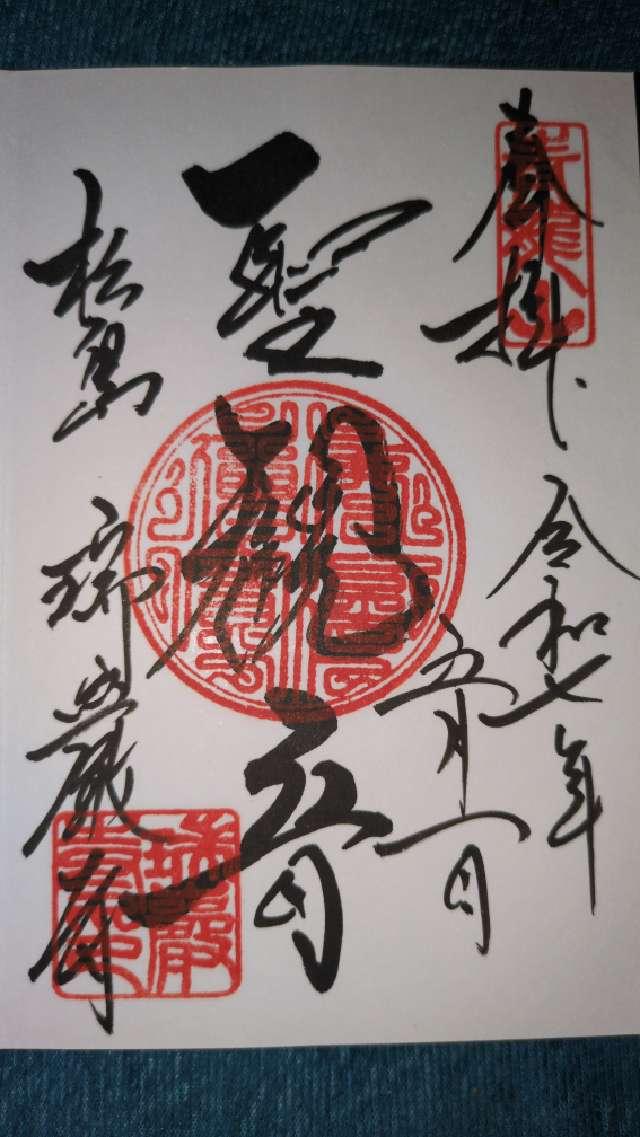 奉拝
令和七年
五月一日
聖観音
松島
瑞巌寺